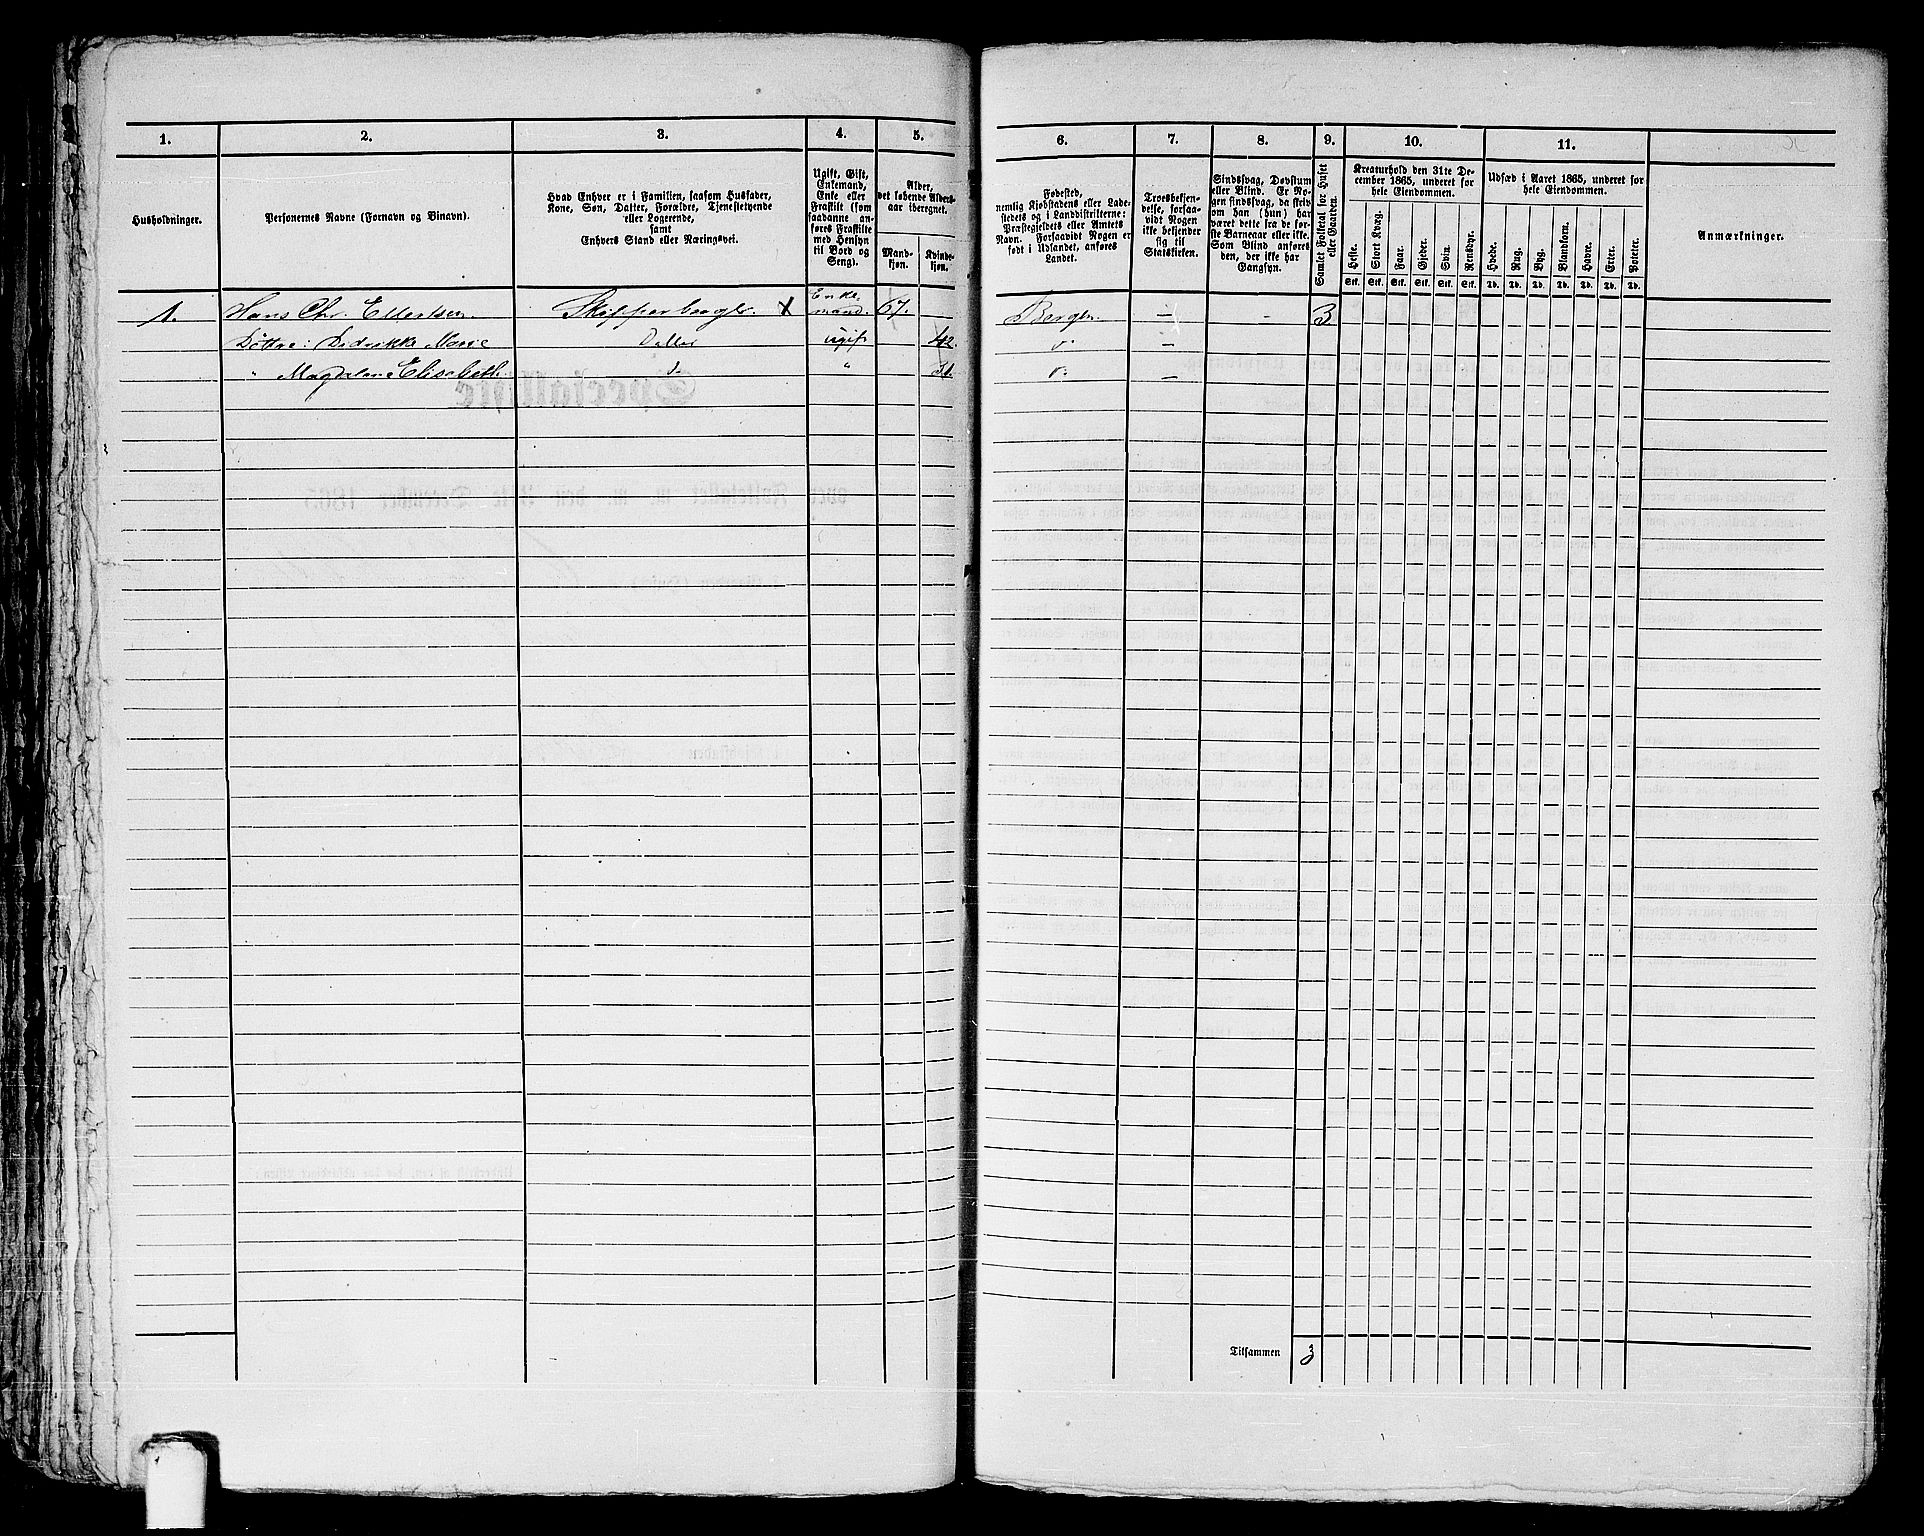 1.
2.
3.
4.
5.
Husholdninger.
Personernes Navne (Fornavn og Binavn).
Hvad Enhver er i Familien, saasom Husfader,
Kone, Søn, Datter, Forældre, Tjenestetyende
eller Logerende,
samt
Enhvers Stand eller Næringsvei.
Ugift, Gift,
Enkemand,
Enke eller
Fraskilt (som
saadanne an-
føres Fraskilte
med Hensyn
til Bord og
Seng).
Alder,
det løbende Alders-
aar iberegnet.
Mand-
kjøn.
Kvinde-
kjøn.
1. Hans Chr. Ellertsen. Skipperborger. Enke-
mand. 67.
Døttre: Didrikke Marie Datter ugift 42
" Magdalene Elisabeth d "
6.
7.
8.
9.
10.
11.
Fødested,
nemlig Kjøbstadens eller Lade-
stedets og i Landdistrikterne:
Præstegjeldets eller Amtets
Navn. Forsaavidt Nogen er
født i Udlandet, anføres
Landet.
Troesbekjen-
delse, forsaa-
vidt Nogen
ikke bekjender
sig til
Statskirken.
Sindssvag, Døvstum
eller Blind. Er No-
gen sindssvag, da skriv
om han (hun) har
været dette fra de før-
ste Barneaar eller ikke.
Som Blind anføres
den, der ikke har
Gangsyn.
Samlet Folketal for Huset
eller Gaarden.
Kreaturhold den 31te De-
cember 1865, underet for
hele Eiendommen.
Heste.
Stort Kvæg.
Faar.
Gjeder.
Svin.
Rensdyr.
Stk. Stk. Stk. Stk. Stk. Stk.
Udsæd i Aaret 1865, underet for
hele Eiendommen.
Hvede.
Rug.
Byg.
Blandkorn.
Havre.
Erter.
Poteter.
Td. Td. Td. Td. Td. Td. Td.
Anmærkninger.
Bergen. — - 3
—
—
Tilsammen 3